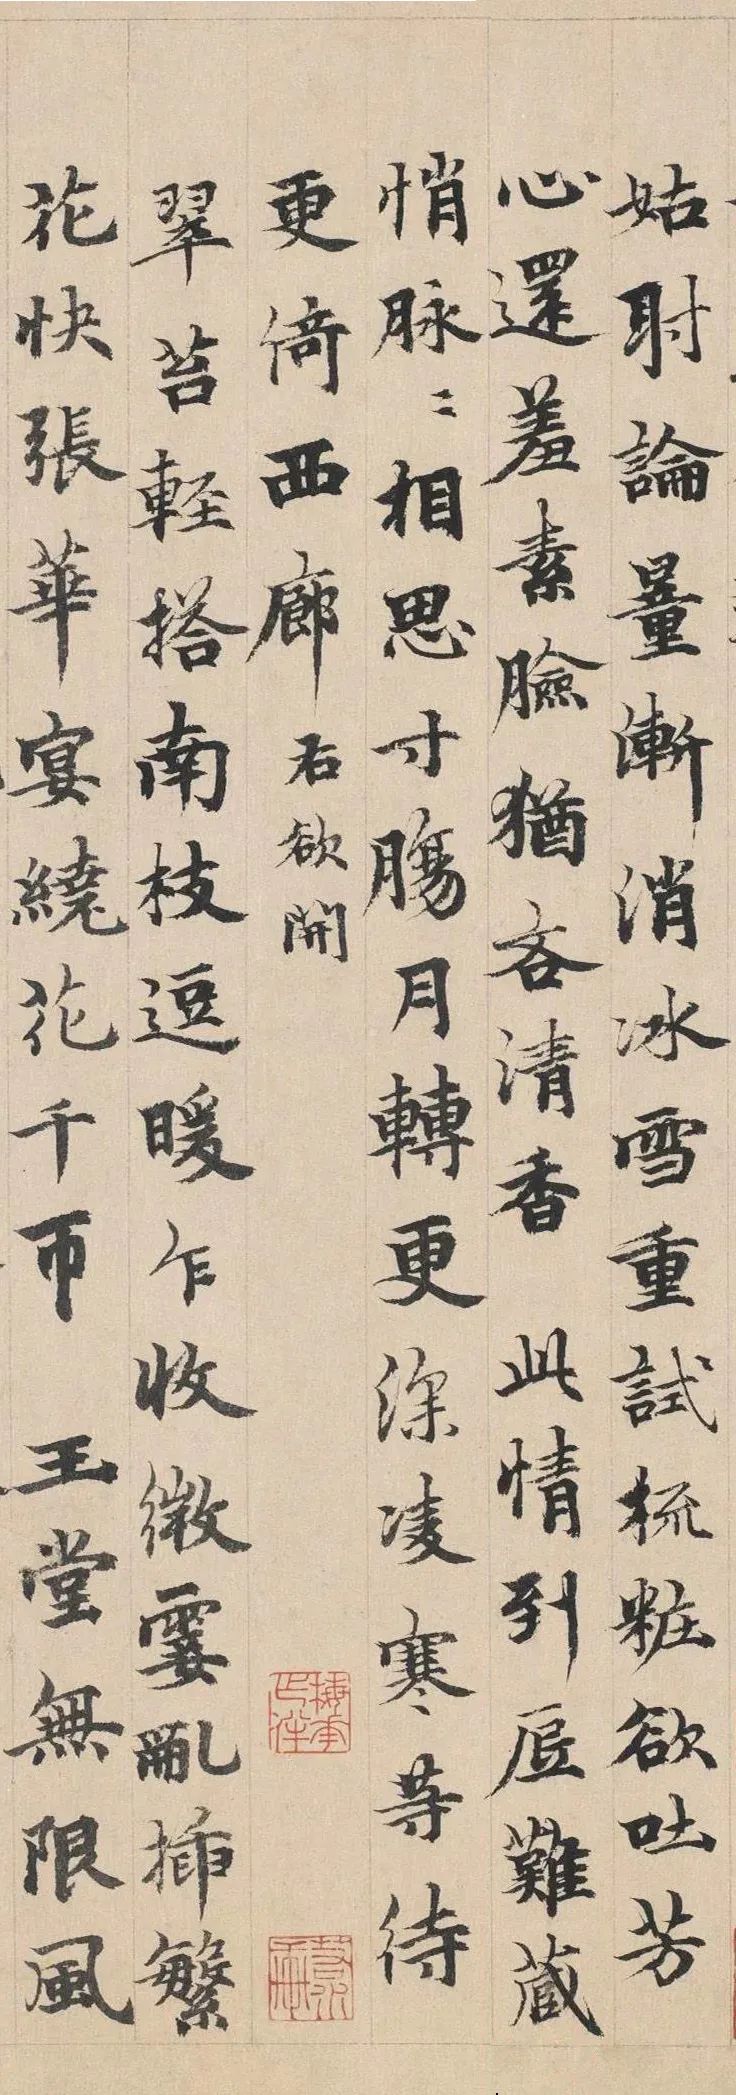 姑射論量漸消冰雪重試梳粧欲吐芳
心還羞素臉猶吝清香 此情到底難藏
悄脉〻相思寸腸月轉更深凌寒等待
更倚西廊 右欲開
翠苔輕搭南枝逗暖乍收微霎亂插繁
花快張華宴繞花千帀 玉堂無限風